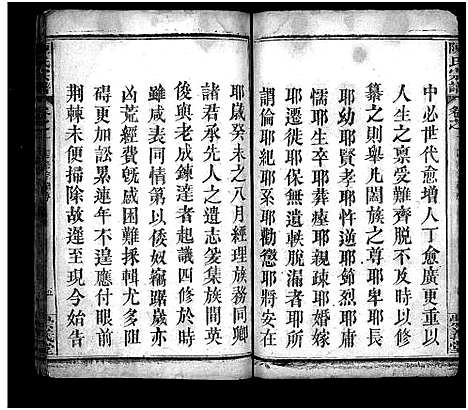 中必世代愈增人丁愈廣更重以
人生之稟受難齊脫不及時登
纂之則舉凡闔族之尊耶卑耶長
耶幼耶賢耶孝耶忤逆耶節烈耶庸
懦耶生卒耶葬塟耶親疎耶婚嫁
耶祖耶保無遺軼脫漏耶而
謂倫耶紀耶耶勸懲耶將安在
耶歲癸未之八月經理族務同卿
諸君承先人之遺志爰集族間英
俊與老成鍊達者起議四修於時
雖咸表同情第以倭奴猖獗歲亦
凶荒經費旣感困難採輯尤多阻
碍更加訟累蓮年不遑應付眼前
荆棘未便掃除故遷至現今始告
陳氏宗譜